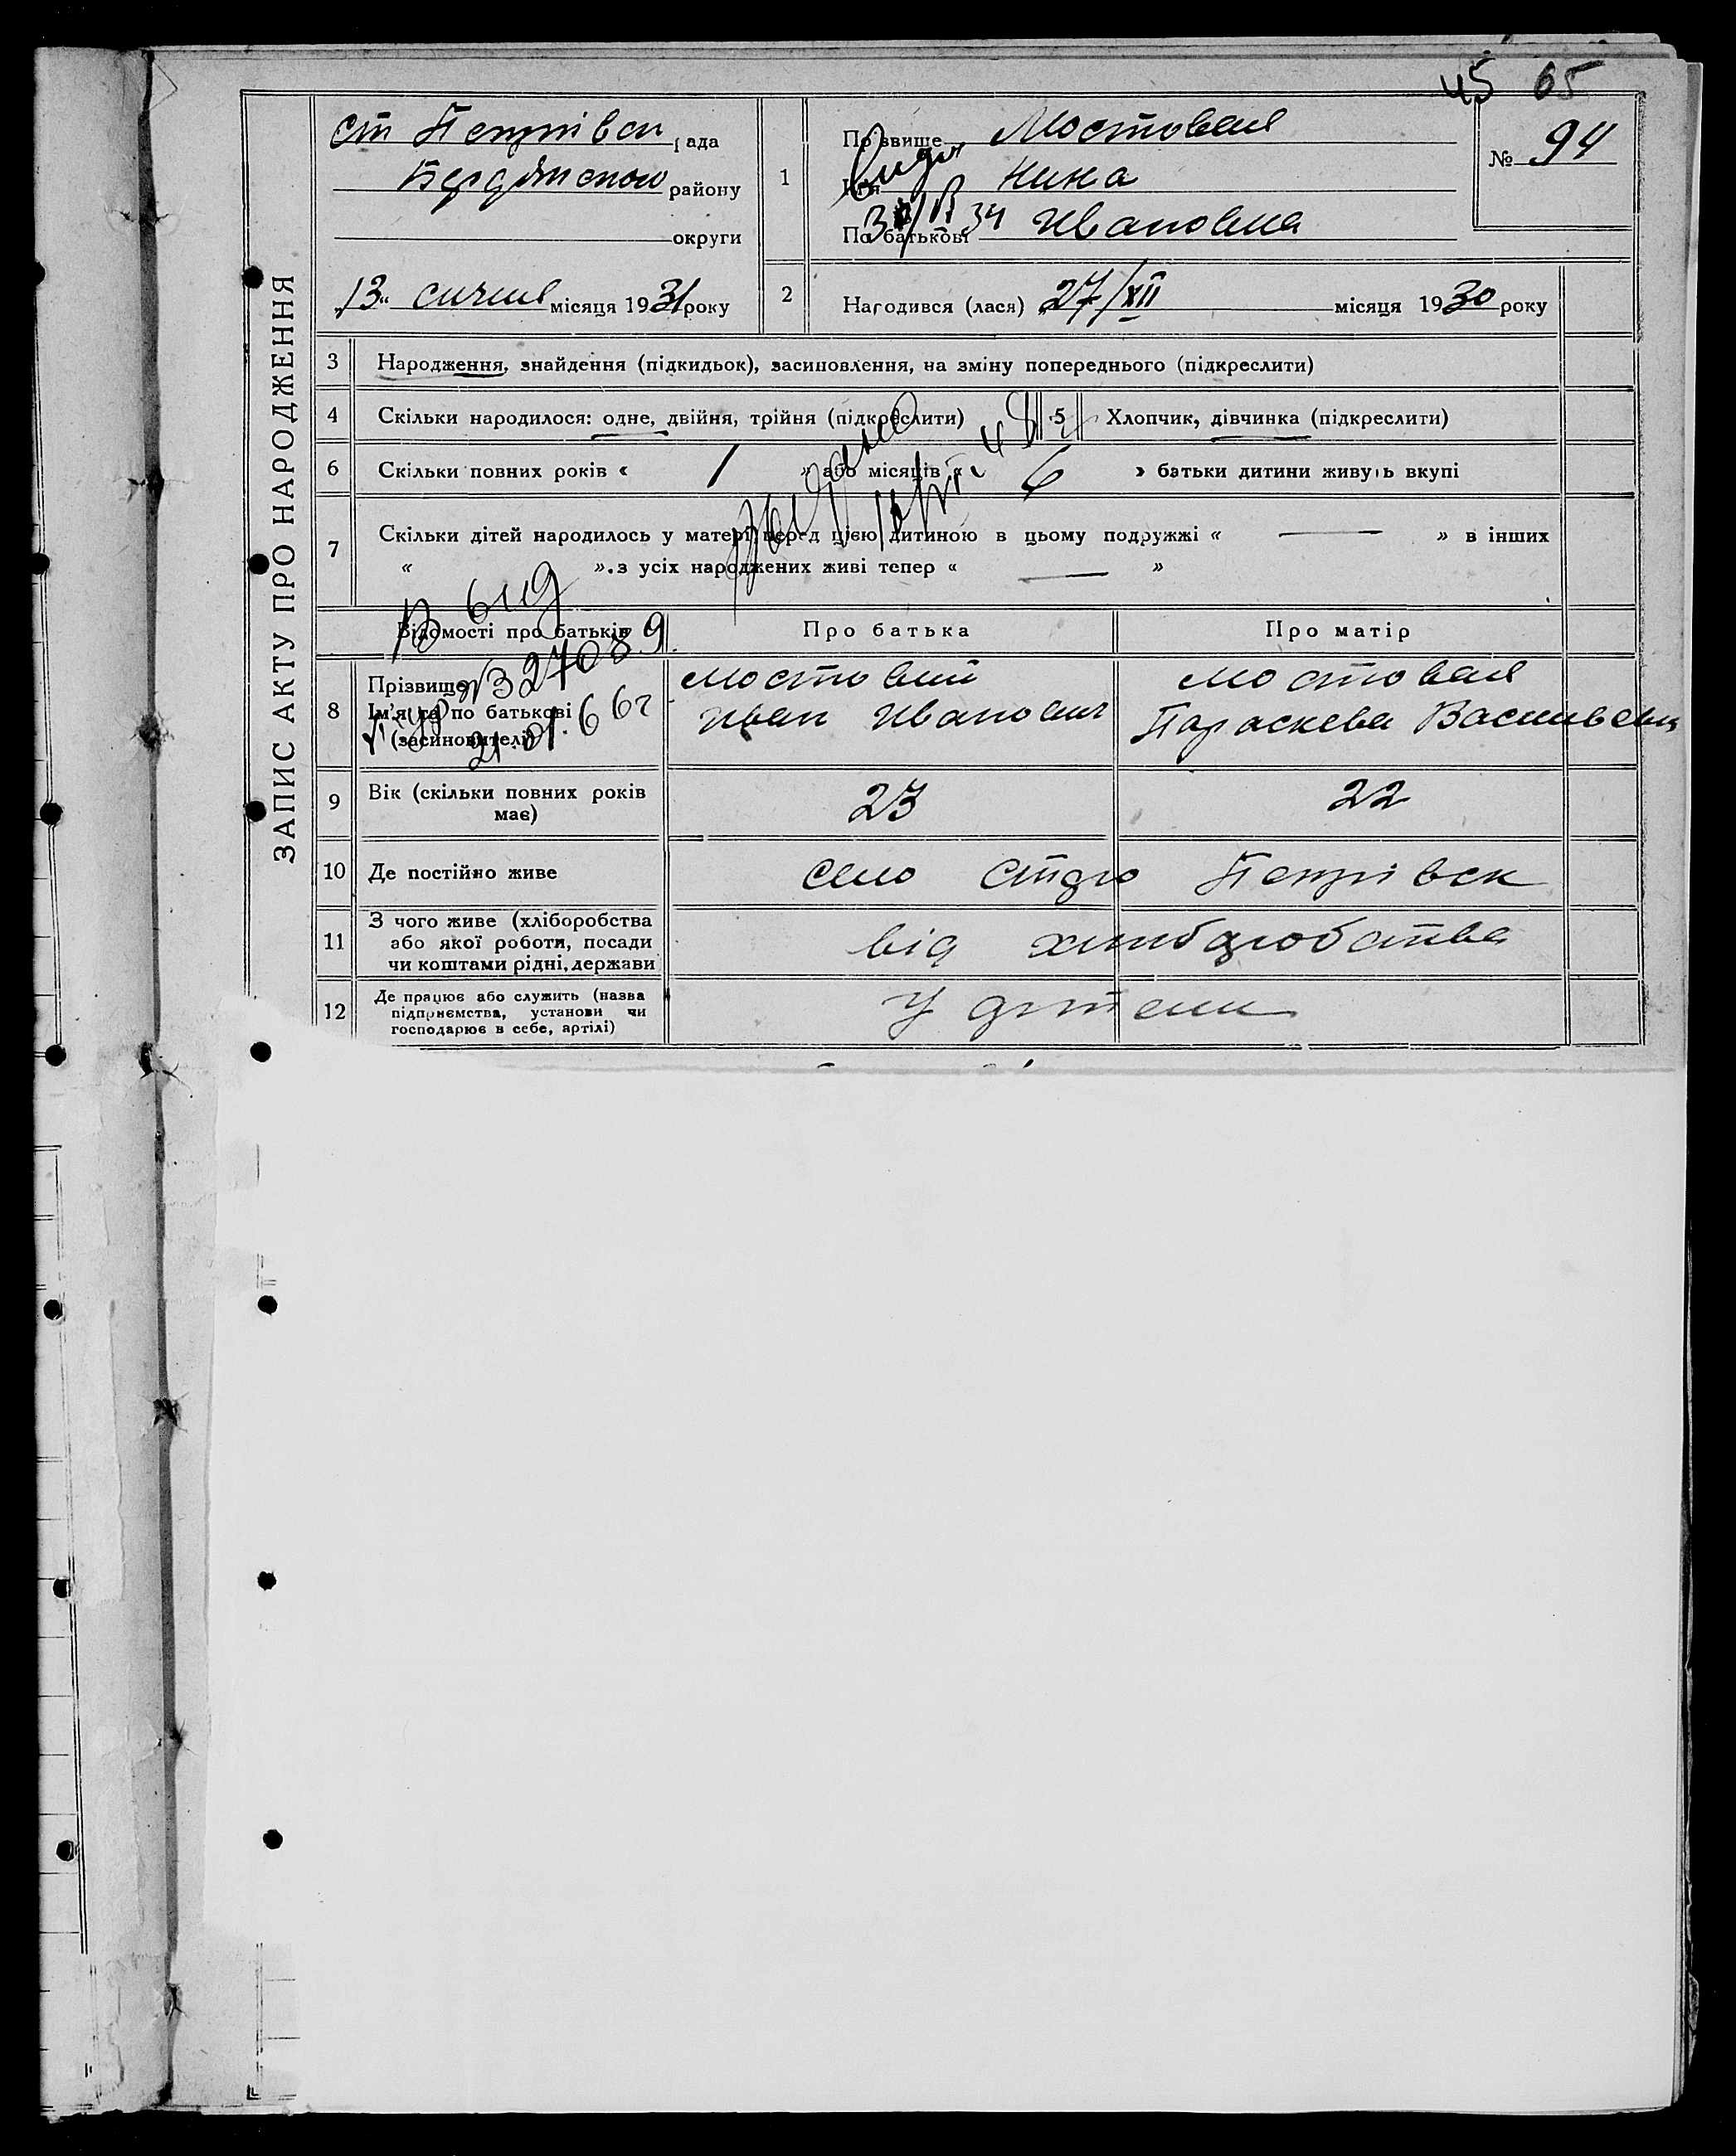 45 65
ЗАПИС АКТУ ПРО НАРОДЖЕННЯ
Ст Петрівск рада
Бердянского району
округи
„13“ сичня місяця 1931 року
1
Прізвище Мостовая
Ім'я Нина
По батькові Ивановна
№ 94
2
Народився (лася) „27/XII місяця 1930 року
3 Народження, знайдення (підкидьок), засиновлення, на зміну попереднього (підкреслити)
4 Скільки народилося: одне, двійня, трійня (підкреслити)
5 Хлопчик, дівчинка (підкреслити)
6 Скільки повних років « 1 » або місяців « 6 » батьки дитини живуть вкупі
7 Скільки дітей народилось у матері перед цією дитиною в цьому подружжі « — » в інших
« » з усіх народжених живі тепер « — »
Відомості про батьків Про батька Про матір
8
Прізвище
Ім'я та по батькові
(засиновителі)
Мостовий
Иван Иванович
Мостовая
Параскева Васильевна
9 Вік (скільки повних років
має)
23
22
10 Де постійно живе
село Старо Петрівск
11 З чого живе (хліборобства
або якої роботи, посади
чи коштами рідні, держави
від хлиборобства
12 Де працює або служить (назва
підприємства, установи чи
господарює в себе, артілі)
У артели